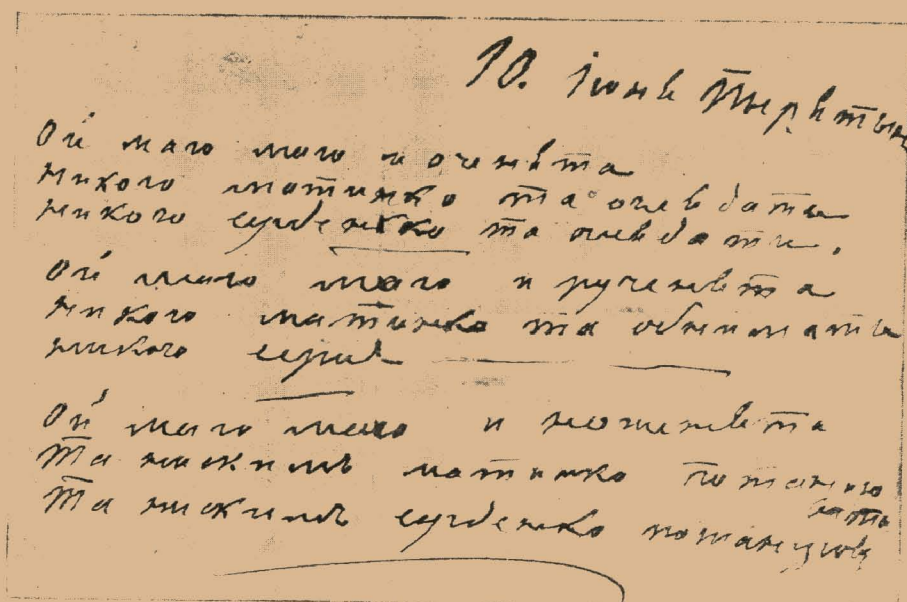 10. Іюнѣ
Ой маю маю и оченѣта
никого матинко та оглѣдаты
никого серденько та оглѣдати.
Ой маю маю и рученѣта
никого матинко та обниматы
никого
Ой маю маю и ноженѣта
Та нискимъ матинко потанцю
ваты
Та нискимъ серденько потанцюв